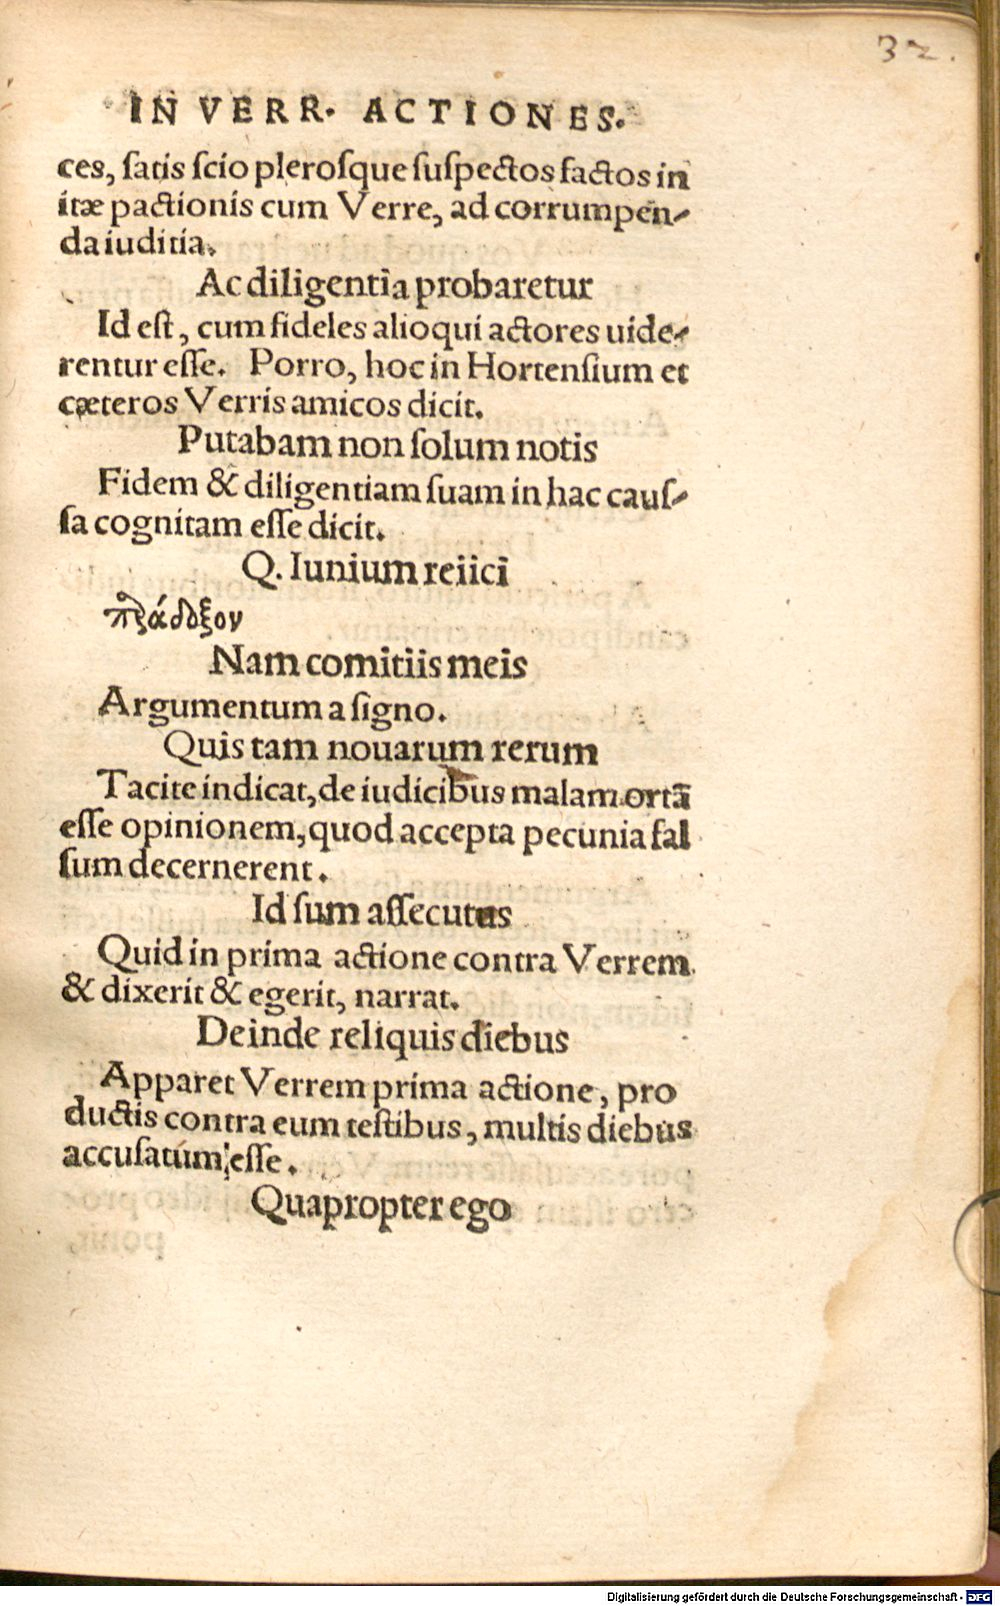 32.
IN VERR. ACTIONES.
ces, satis scio plerosque suspectos factos in
itæ pactionis cum Verre, ad corrumpen-
da iuditia.
Ac diligentia probaretur
Id est, cum fideles alioqui actores uide-
rentur esse. Porro, hoc in Hortensium et
cæteros Verris amicos dicit.
Putabam non solum notis
Fidem & diligentiam suam in hac caus-
sa cognitam esse dicit.
Q. Iunium reiici
πράδοξον
Nam comitiis meis
Argumentum a signo.
Quis tam nouarum rerum
Tacite indicat, de iudicibus malam ortā
esse opinionem, quod accepta pecunia fal
sum decernerent.
Id sum assecutus
Quid in prima actione contra Verrem
& dixerit & egerit, narrat.
Deinde reliquis diebus
Apparet Verrem prima actione, pro
ductis contra eum testibus, multis diebus
accusatum esse.
Quapropter ego
Digitalisierung gefördert durch die Deutsche Forschungsgemeinschaft - DFG